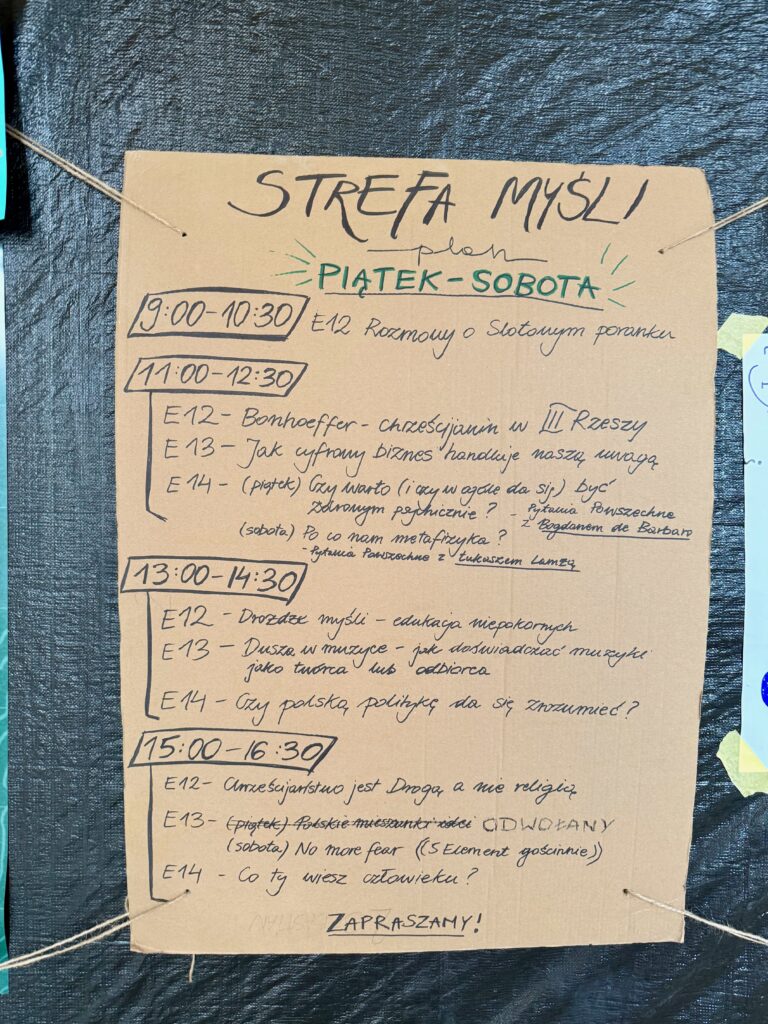 STREFA MYŚLI
plan
PIĄTEK - SOBOTA
9:00-10:30 E12 Rozmowy o Slotowym poranku
11:00-12:30
E12 - Bonhoeffer - chrześcijanin w III Rzeszy
E13 - Jak cyfrowy biznes handluje naszą uwagą
E14 - (piątek) Czy warto (i czy w ogóle da się) być
zdrowym psychicznie? - Pytania Powszechne
z Bogdanem de Barbaro
(sobota) Po co nam metafizyka?
- Pytania Powszechne z Łukaszem Lamżą
13:00-14:30
E12 - Drożdże myśli - edukacja niepokornych
E13 - Dusza w muzyce - jak doświadczać muzyki
jako twórca lub odbiorca
E14 - Czy polską politykę da się zrozumieć?
15:00-16:30
E12 - Chrześcijaństwo jest Drogą a nie religią
E13 - (piątek) Polskie mieszanki idei ODWOŁANY
(sobota) No more fear ((5 Element gościnnie))
E14 - Co ty wiesz człowieku?
ZAPRASZAMY!